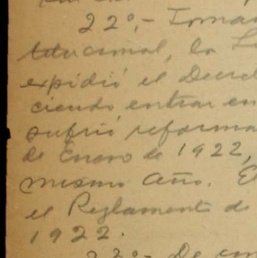 22º.- Toma
titucional, la L
expidió el Decre
ciendo entrar en
sufrió reforma
de Enero de 1922,
mismo Año. E
el Reglamento de
1922.
23º.- De con